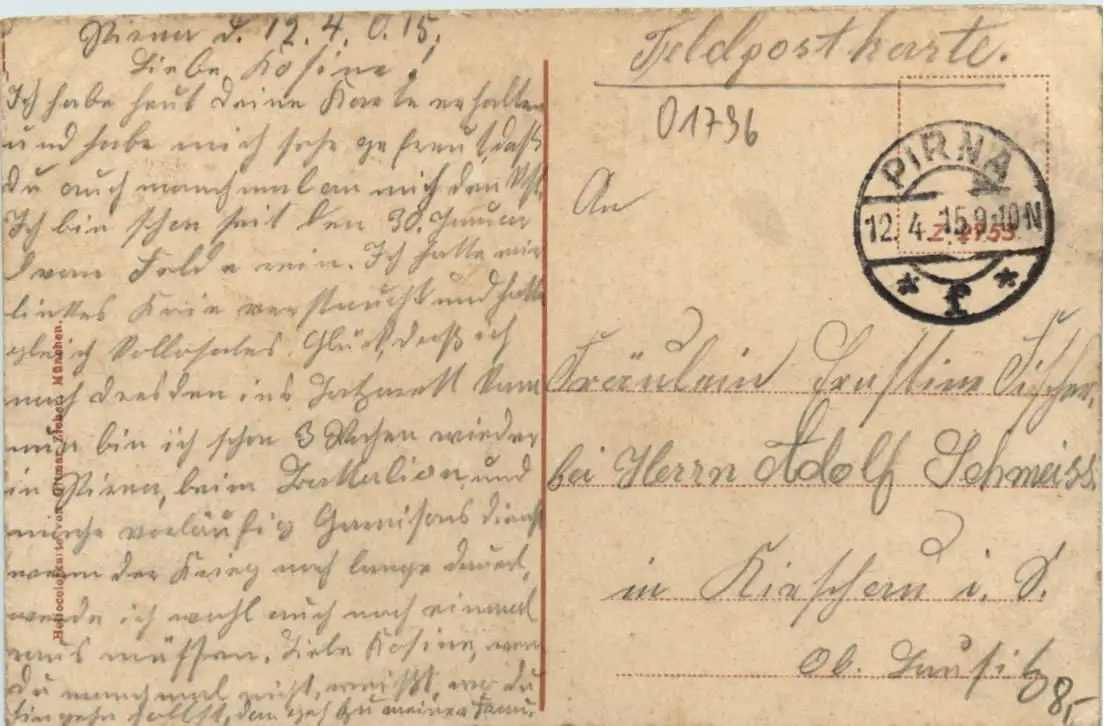 Pirna d. 12.4.0.15.
Liebe Kosine!
Ich habe heut deine Karte erhalten
und habe mich sehr gefreut, daß
du auch manchmal an mich denkst.
Ich bin schon seit den 30. Januar
vom Felde rein. Ich hatte mir
linkes Knie verstaucht und hatte
gleich Glück, daß ich
nach Dresden ins Lazarett kam
nun bin ich schon 3 Wochen wieder
in Pirna, beim Battalion, und
mache vorläufig Garnisons dienst
wenn der Krieg noch lange dauert,
werde ich wohl auch noch einmal
raus müssen. Liebe Kosine, wen
du manchmal nicht weißt, wo du
hingehn sollst, dan geh zu meiner Frau.
Heliocolorkarte von Ottmar Zieher, München.
Feldpostkarte.
01796
An
PIRNA
12.4.15.9-10N
* f *
Fräulein Ernstine Fischer,
bei Herrn Adolf Schmeiss
in Kirschau i. S.
Ob. Lausitz
8,-